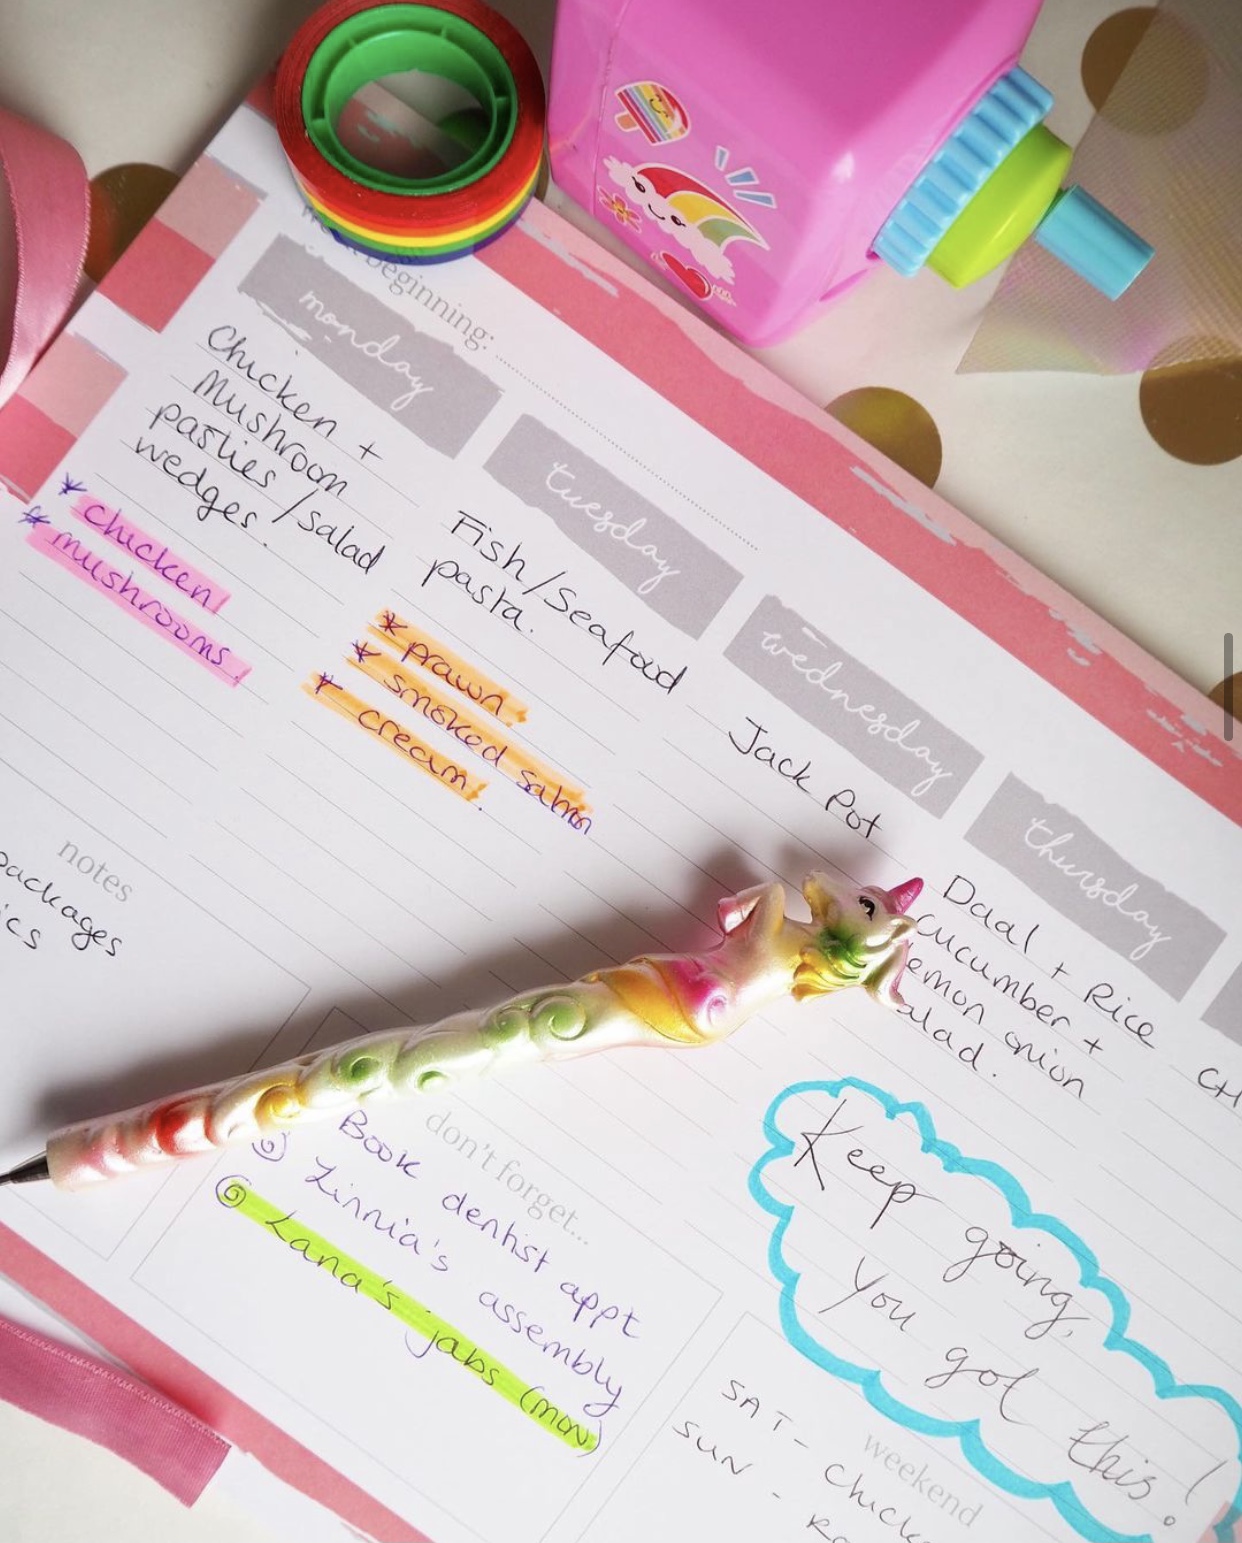 beginning:
monday
Chicken +
Mushroom
pasties /salad
wedges.
* chicken
* mushrooms.
tuesday
Fish/Seafood
pasta.
* prawn.
* smoked salmon
* cream.
wednesday
Jack Pot
thursday
Daal + Rice
Cucumber +
lemon onion
salad.
CH
notes
packages
ics
don't forget...
Book dentist appt
Zinnia's assembly
Lana's jabs (mon)
Keep going,
You got this!
weekend
SAT - Chick
SUN - Ro